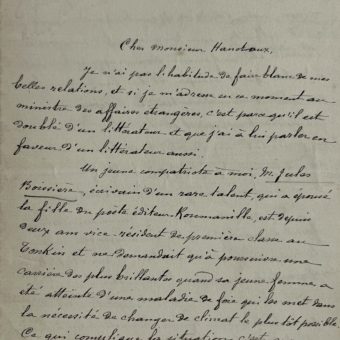 Cher Monsieur Hanotaux,
Je n'ai pas l'habitude de faire blanc de mes
belles relations, et si je m'adresse en ce moment au
ministre des affaires étrangères, c'est parce qu'il est
doublé d'un littérateur et que j'ai à lui parler en
faveur d'un littérateur aussi.
Un jeune compatriote à moi, Mr. Jules
Boissière, écrivain d'un rare talent, qui a épousé
la fille du poète éditeur Roumanille, est depuis
deux ans vice résident de première classe au
Tonkin et ne demandait qu'à poursuivre une
carrière des plus brillantes quand sa jeune femme a
été atteinte d'une maladie de foie qui les met dans
la nécessité de changer de climat le plus tôt possible.
Ce qui complique la situation c'est